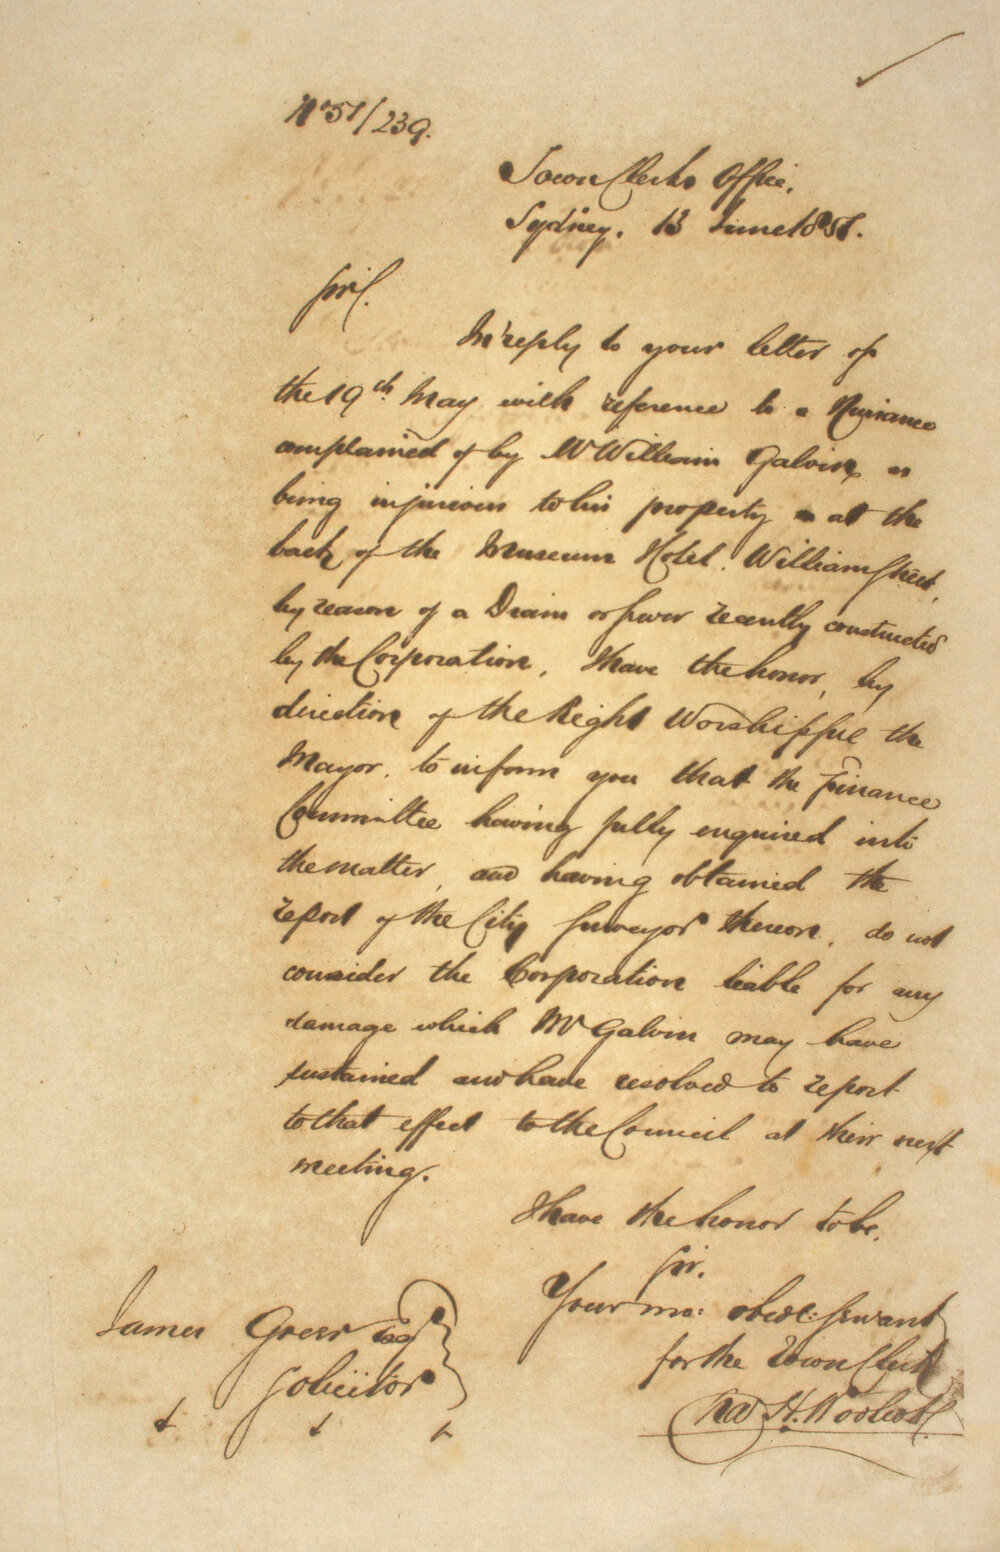 No 51/239.
Town Clerks Office,
Sydney. 13 June 1851.
Sir,
In reply to your letter of
the 19th May with reference to a Nuisance
complained of by Mr William Galvin as
being injurious to his property at the
back of the Museum Hotel. William Street,
by reason of a Drain or Sewer recently constructed
by the Corporation, I have the honor, by
direction of the Right Worshipful the
Mayor, to inform you that the Finance
Committee having fully enquired into
the matter, and having obtained the
report of the City Surveyor thereon, do not
consider the Corporation liable for any
damage which Mr Galvin may have
sustained and have resolved to report
to that effect to the Council at their next
meeting.
I have the honor to be,
Sir,
Your mo: obedt: Servant
for the Town Clerk
Chas H. Woolcott
James Greer Esqr
Solicitor